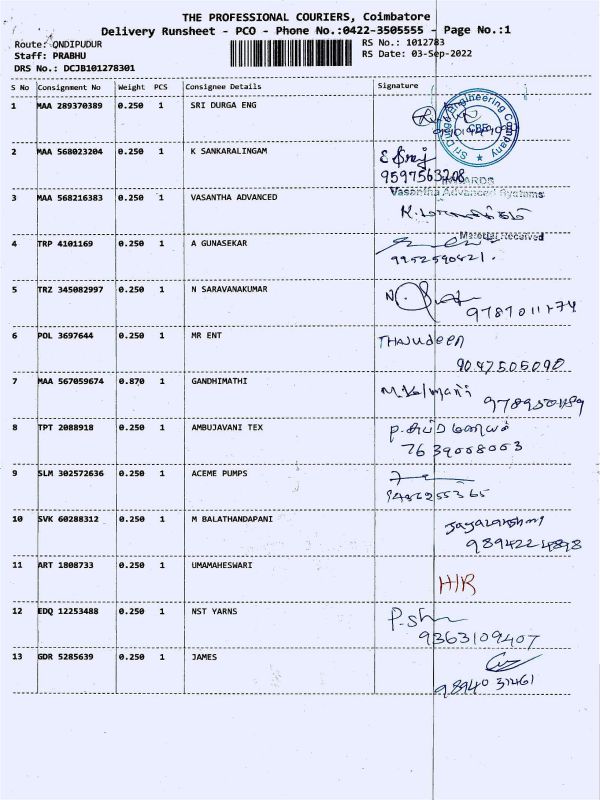 THE PROFESSIONAL COURIERS, Coimbatore
Delivery Runsheet - PCO - Phone No.:0422-3505555 - Page No.:1
Route: ONDIPUDUR RS No.: 1012783
Staff: PRABHU RS Date: 03-Sep-2022
DRS No.: DCJB101278301
S No Consignment No Weight PCS Consignee Details Signature
1 MAA 289370389 0.250 1 SRI DURGA ENG
Sri Durga Engineering Company
CBE
2 MAA 568023204 0.250 1 K SANKARALINGAM
9597563208
3 MAA 568216383 0.250 1 VASANTHA ADVANCED
Vasantha Advanced Systems
Material Received
4 TRP 4101169 0.250 1 A GUNASEKAR
9952590821.
5 TRZ 345082997 0.250 1 N SARAVANAKUMAR
6 POL 3697644 0.250 1 MR ENT THAJUdeen
9047505090
7 MAA 567059674 0.870 1 GANDHIMATHI
8 TPT 2088918 0.250 1 AMBUJAVANI TEX
7639008003
9 SLM 302572636 0.250 1 ACEME PUMPS
9486255365
10 SVK 60288312 0.250 1 M BALATHANDAPANI
11 ART 1808733 0.250 1 UMAMAHESWARI
H/R
12 EDQ 12253488 0.250 1 NST YARNS
9363109407
13 GDR 5285639 0.250 1 JAMES
9894031461